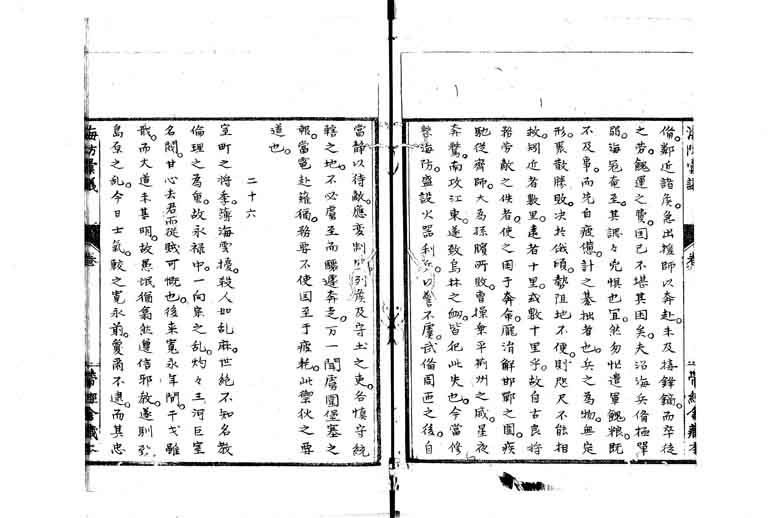 備鄰近諸侯急出援師以奔赴未及搪鋒鏑而卒徒
之勞餽運之費固已不堪其困矣夫沿海兵備極單
弱海寇奄至其謂々兇惧也宜然勿忙遣軍餽粮既
不及事而先自疲憊計之甚拙者也兵之為物無定
形衆散勝敗决於俄頃勢阻地不便則咫尺不能相
救矧近者數里遠者十里或數十里乎故自古良將
務勞敵之佚者使之困于奔命龐涓解邯鄲之圍疾
馳從齊師大為孫臏所敗曹操乘平荊州之威星夜
奔騖南攻江東遂致烏林之衂皆犯此失也今當修
整海防盛設火器利兵以警不虞武備周匝之後自
當靜以待敵應變制列侯及守土之吏各慎守統
轄之地不必虞至而驅遷奔走万一聞虜圍偪塞之
報當電赴援猶務要不使困至于疲耗此禦狄之要
道也
二十六
室町之將季溥海雲擾殺人如乱麻世絶不知名教
倫理之為重故永禄中一向宗之乱灼々三河巨室
名閥甘心去君而從賊可慨也後来寛永年間干戈雖
戢而大道未甚明故愚氓猶翕然遵信邪敎遂馴致
島原之乱今日士氣較之寛永前愛爾不逮而其忠
海防彙議
巻
二
帶經舎藏本